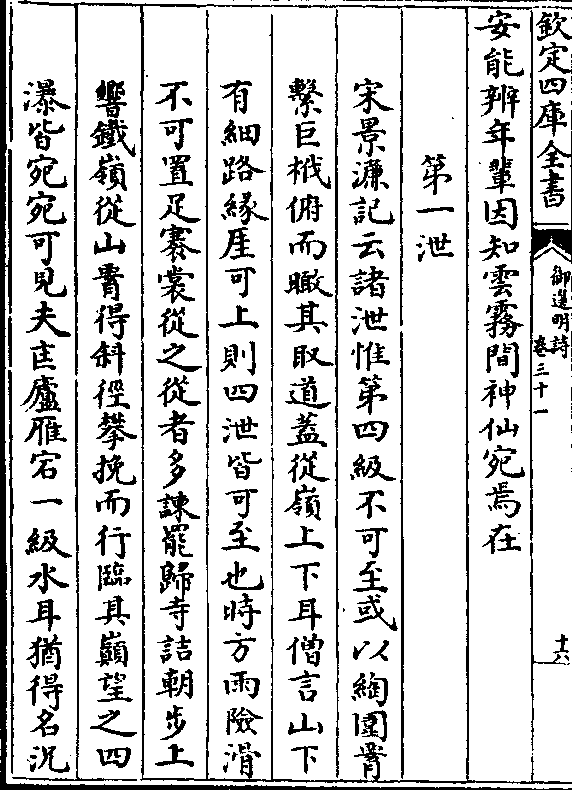 欽定四庫全書
御選明詩
卷三十一
十六
安能辨年輩因知雲霧間神仙宛焉在
第一泄
宋景濂記云諸泄惟第四級不可至或以絢圍腎
繫巨栰俯而瞰其取道蓋從嶺上下耳僧言山下
有細路緣厓可上則四泄皆可至也時方雨險滑
不可置足褰裳從之從者多諫罷歸寺詰朝步上
響鐵嶺從山脊得斜徑攀挽而行臨其巔望之四
瀑皆宛宛可見夫匡廬雁宕一級水耳猶得名況